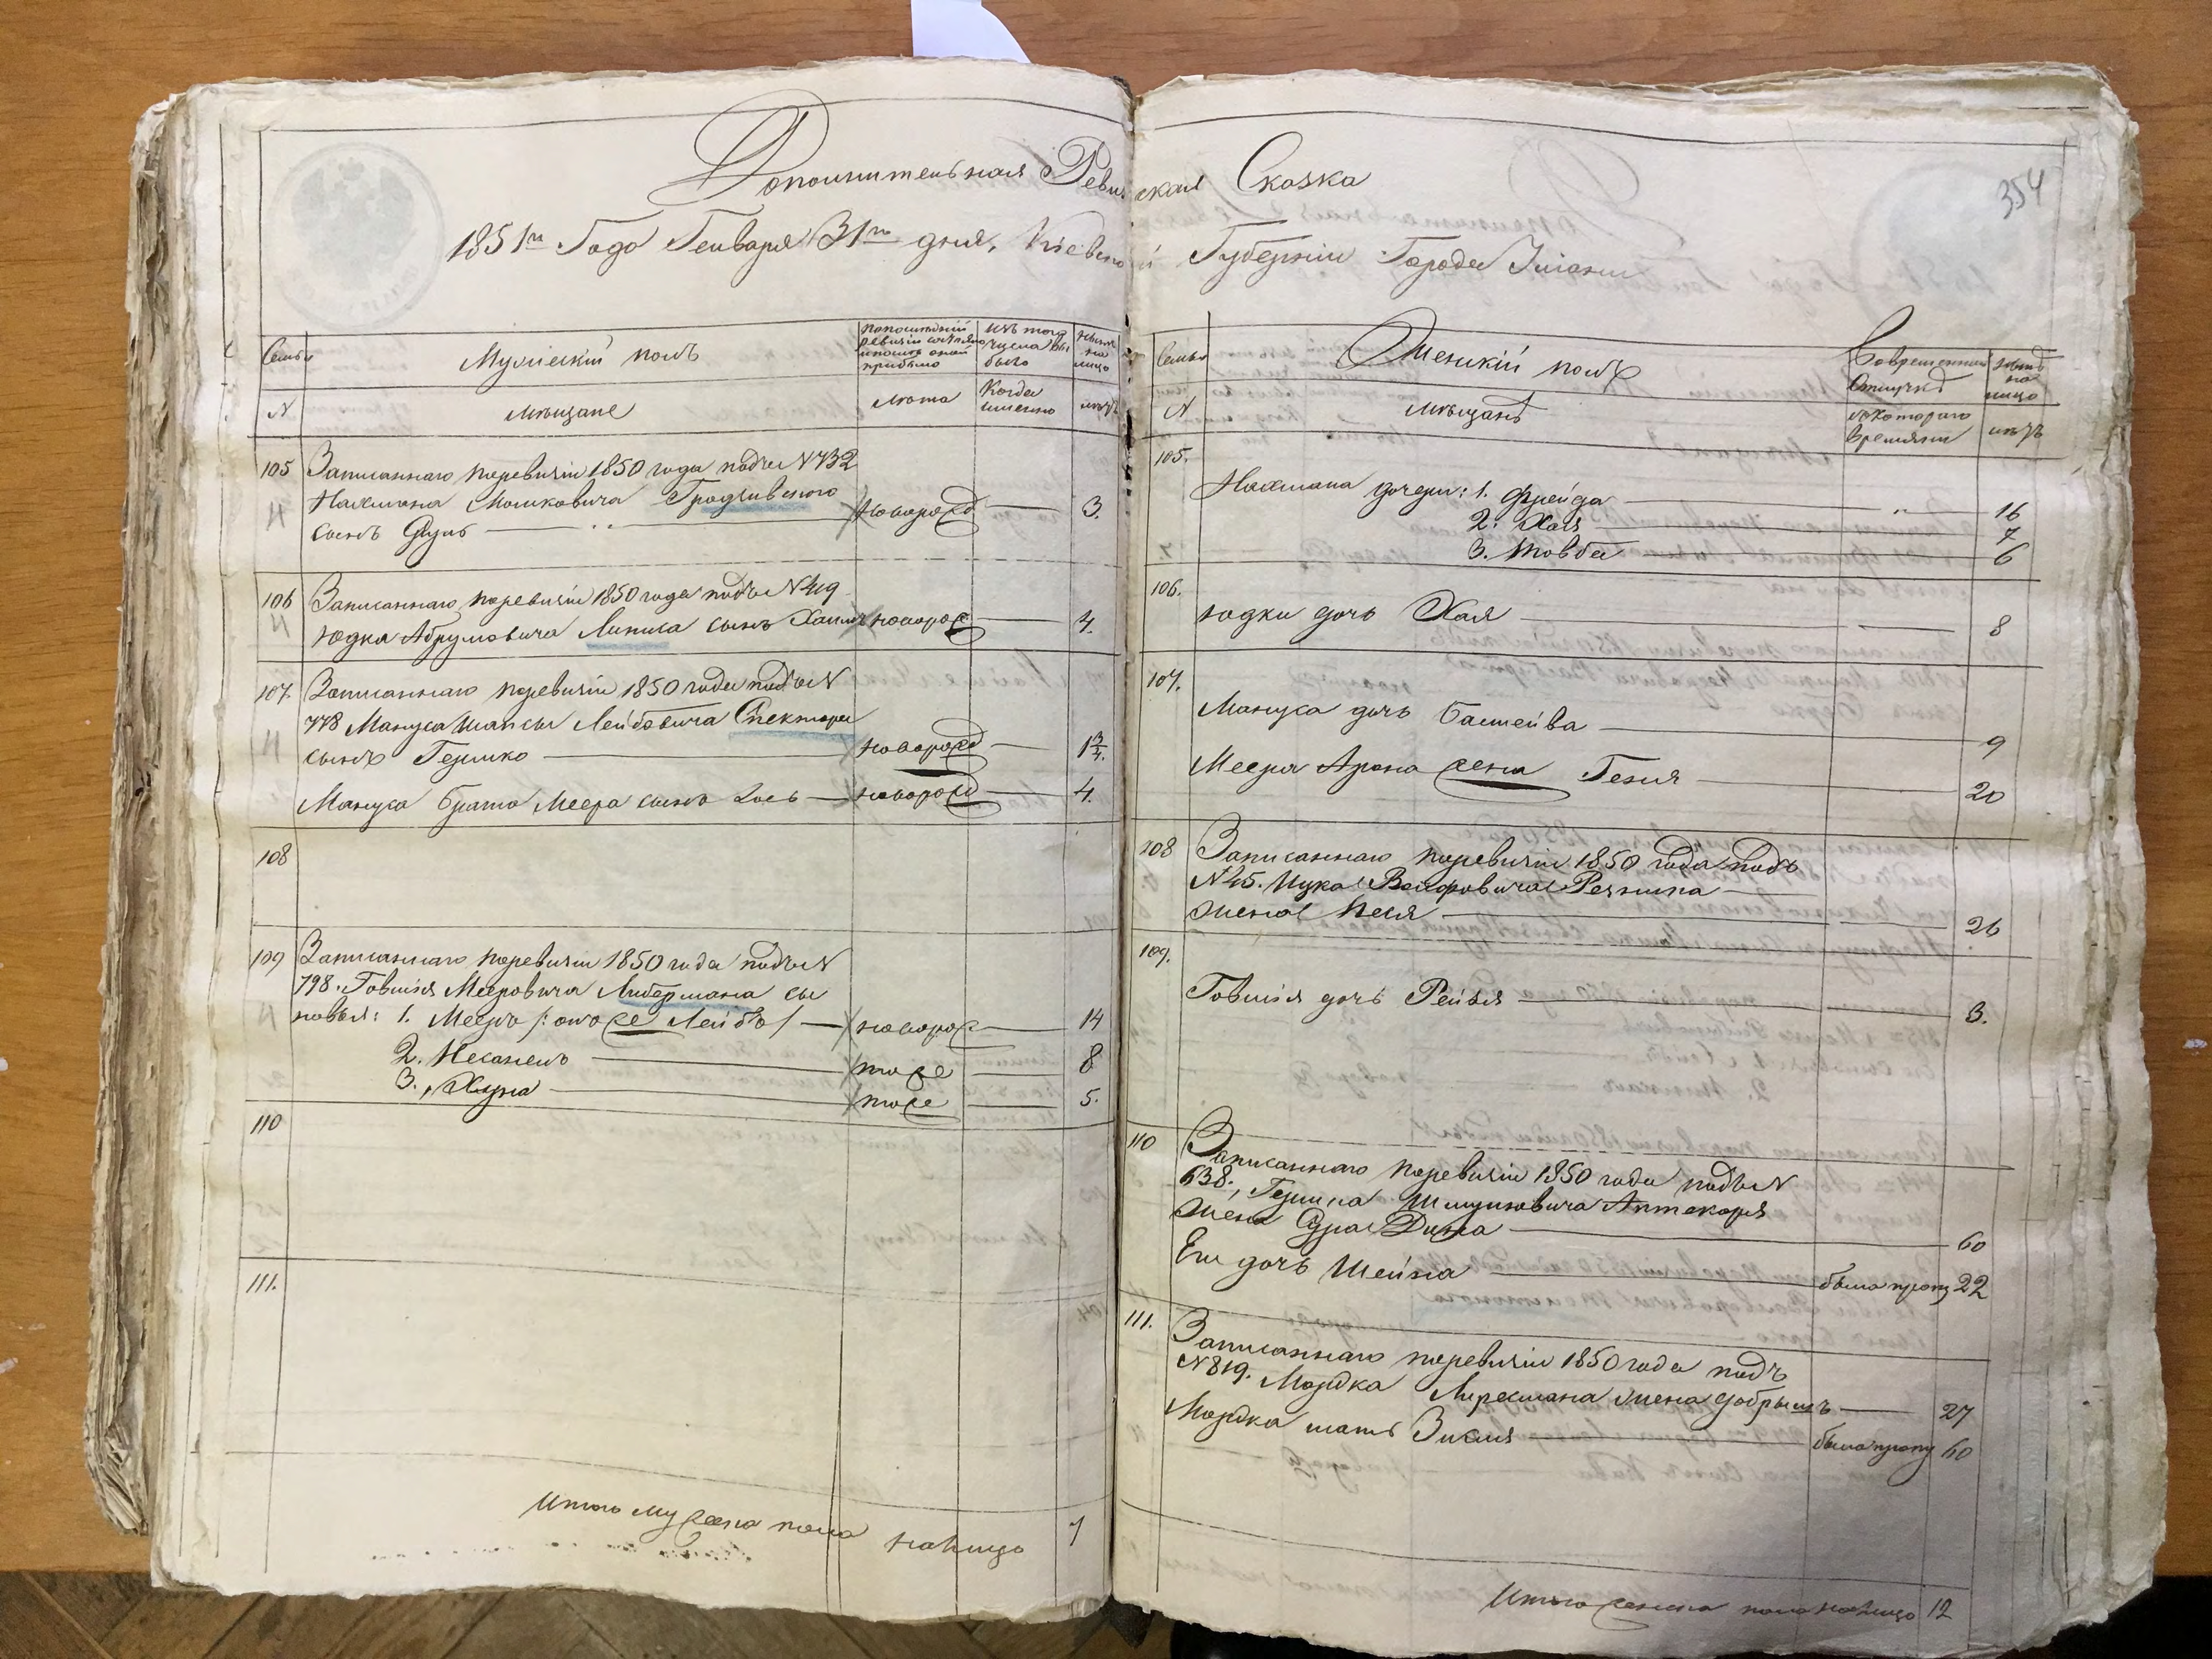 Дополнительная Ревизская Сказка
354
1851го Года Генваря 31го дня, Кіевской Губерніи Города Умани
Семья
Мужескій полъ
По последней ревизіи состояло и после оной прибыло
Изъ того числа выбыло
Ныне на лицо
N
мещане
Лета
Когда именно
летъ
105
Записаннаго поревизіи 1850 года подъ N 732
Нахмана МошковичаГрадзивского
сынъ Сруль — новорожд — 3.
106
Записаннаго поревизіи 1850 года подъ N 419
Юдка Абрумовича Липиса сынъ Хаимъ новорож — 4.
107.
Записаннаго поревизіи 1850 года подъ N
778 Мануса Шапсы Лейбовича Спектора
сынъ Гершко — новорожд — 1 3/4.
Мануса брата Меера сынъ Іось — новорожд — 4.
108
109
Записаннаго поревизіи 1850 года подъ N
798. Говшія Мееровича Либермана сы
новья: 1. Мееръ /: онъ же Лейбъ / — новорож — 14
2. Несанель — тоже — 8
3. Хуна — тоже — 5.
110
111.
Итого мужеска пола налицо 7
Семья
Женскій полъ
Во временной отлучке
ныне на лицо
N
мещане
съ котораго времяни
летъ
105.
Нахмана дочери: 1. Фрейда — 16
2. Хая — 7
3. Товба — 6
106.
Юдки дочь Хая — 8
107.
Мануса дочь Басшейва — 9
Меера Арона жена Геня — 20
108
Записаннаго поревизіи 1850 года подъ
N 45. Ицка Вольфовича
жена Песя — 26
109.
Говшія дочь Рейзя — 3.
110
Записаннаго поревизіи 1850 года подъ N
638., Гершка Шмуновича Аптекаря
жена Сура Дина — 60
Его дочь Шейна — была проп 22
111.
Записаннаго поревизіи 1850 года подъ
N 819. Мордка Лерхмана жена Добрышъ — 27
Мордка мать Зисля — была проп 60
Итого женска пола налицо 12